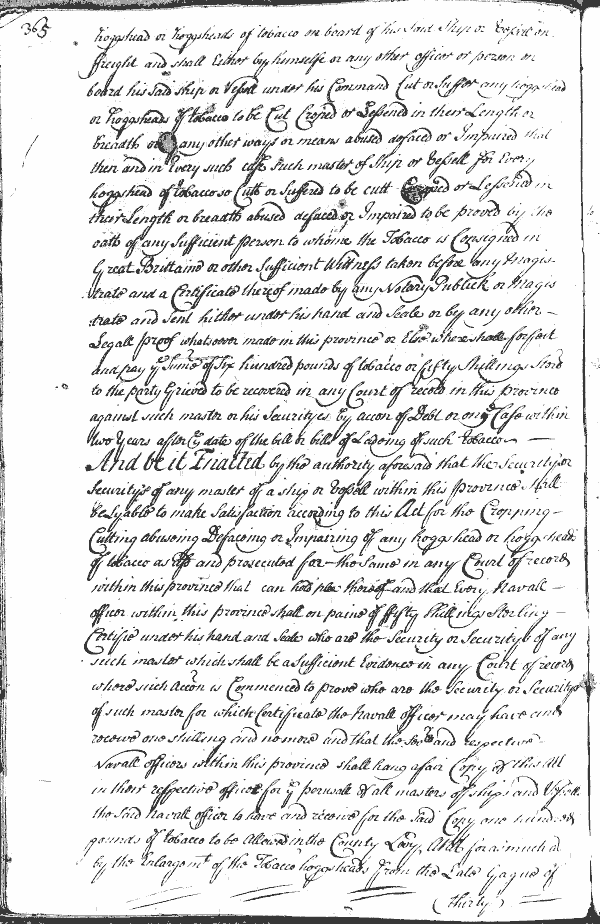 365
hoggshead or hoggsheads of tobacco on board of his Said Ship or Vessell on
ffreight and shall Either by himselfe or any other officer or person on
board his Said ship or Vessell under his Command Cut or Suffer any hoggshead
or hoggsheads of tobacco to be Cut Croped or Lessened in their Length or
breadth or any other ways or means abused defaced or Impaired that
then and in Every such case such master of Ship or Vessell for Every
hoggshead of tobacco so Cutt or Suffered to be cutt Croped or Lessened in
their Length or breadth abused defaced or Impaired to be proved by the
oath of any Sufficient person to whome the Tobacco is Consigned in
Great Brittaine or other Sufficient Wittness taken before any Magis
trate and a Certificate thereof made by any Notary Publick or Magis
trate and Sent hither under his hand and Seale or by any other
Legall proof whatsoever made in this province or Else where shall forfeit
and pay ye Sume of Six hundred pounds of tobacco or fifty Shillings Sterl
to the party Grieved to be recovered in any Court of record in this province
against such master or his Securityes by accon of Debt or on ye Case within
two Years after ye date of the bill or bills of Ladeing of such tobacco
And be it Enacted by the authority aforesaid that the Security or
Securitys of any master of a ship or Vessell within this Province shall
be Lyable to make Satisfaction according to this Act for the Cropping
Cutting abuseing Defaceing or Impairing of any hoggshead or hoggsheads
of tobacco as afd and prosecuted for the same in any Court of record
within this province that can hold plea thereof and that Every Navall
officer within this province shall on paine of fifty shillings Sterling
Certifie under his hand and Seale who are the Security or Securitys of any
such master which shall be a Sufficient Evidence in any Court of record
where such accon is Commenced to prove who are the Security or Securitys
of such master for which Certificate the Navall officer may have and
receive one shilling and no more and that the Said and respective
Navall officers within this province shall hang a fair Copy of this Act
in their respective offices for ye perusall of all masters of ships and Vessells
the said navall officer to have and receive for the said Copy one hundred
pounds of tobacco to be Allowed in the County Levy And for as much as
by the Enlargemt of the Tobacco hoggsheads from the Late Gague of
thirty